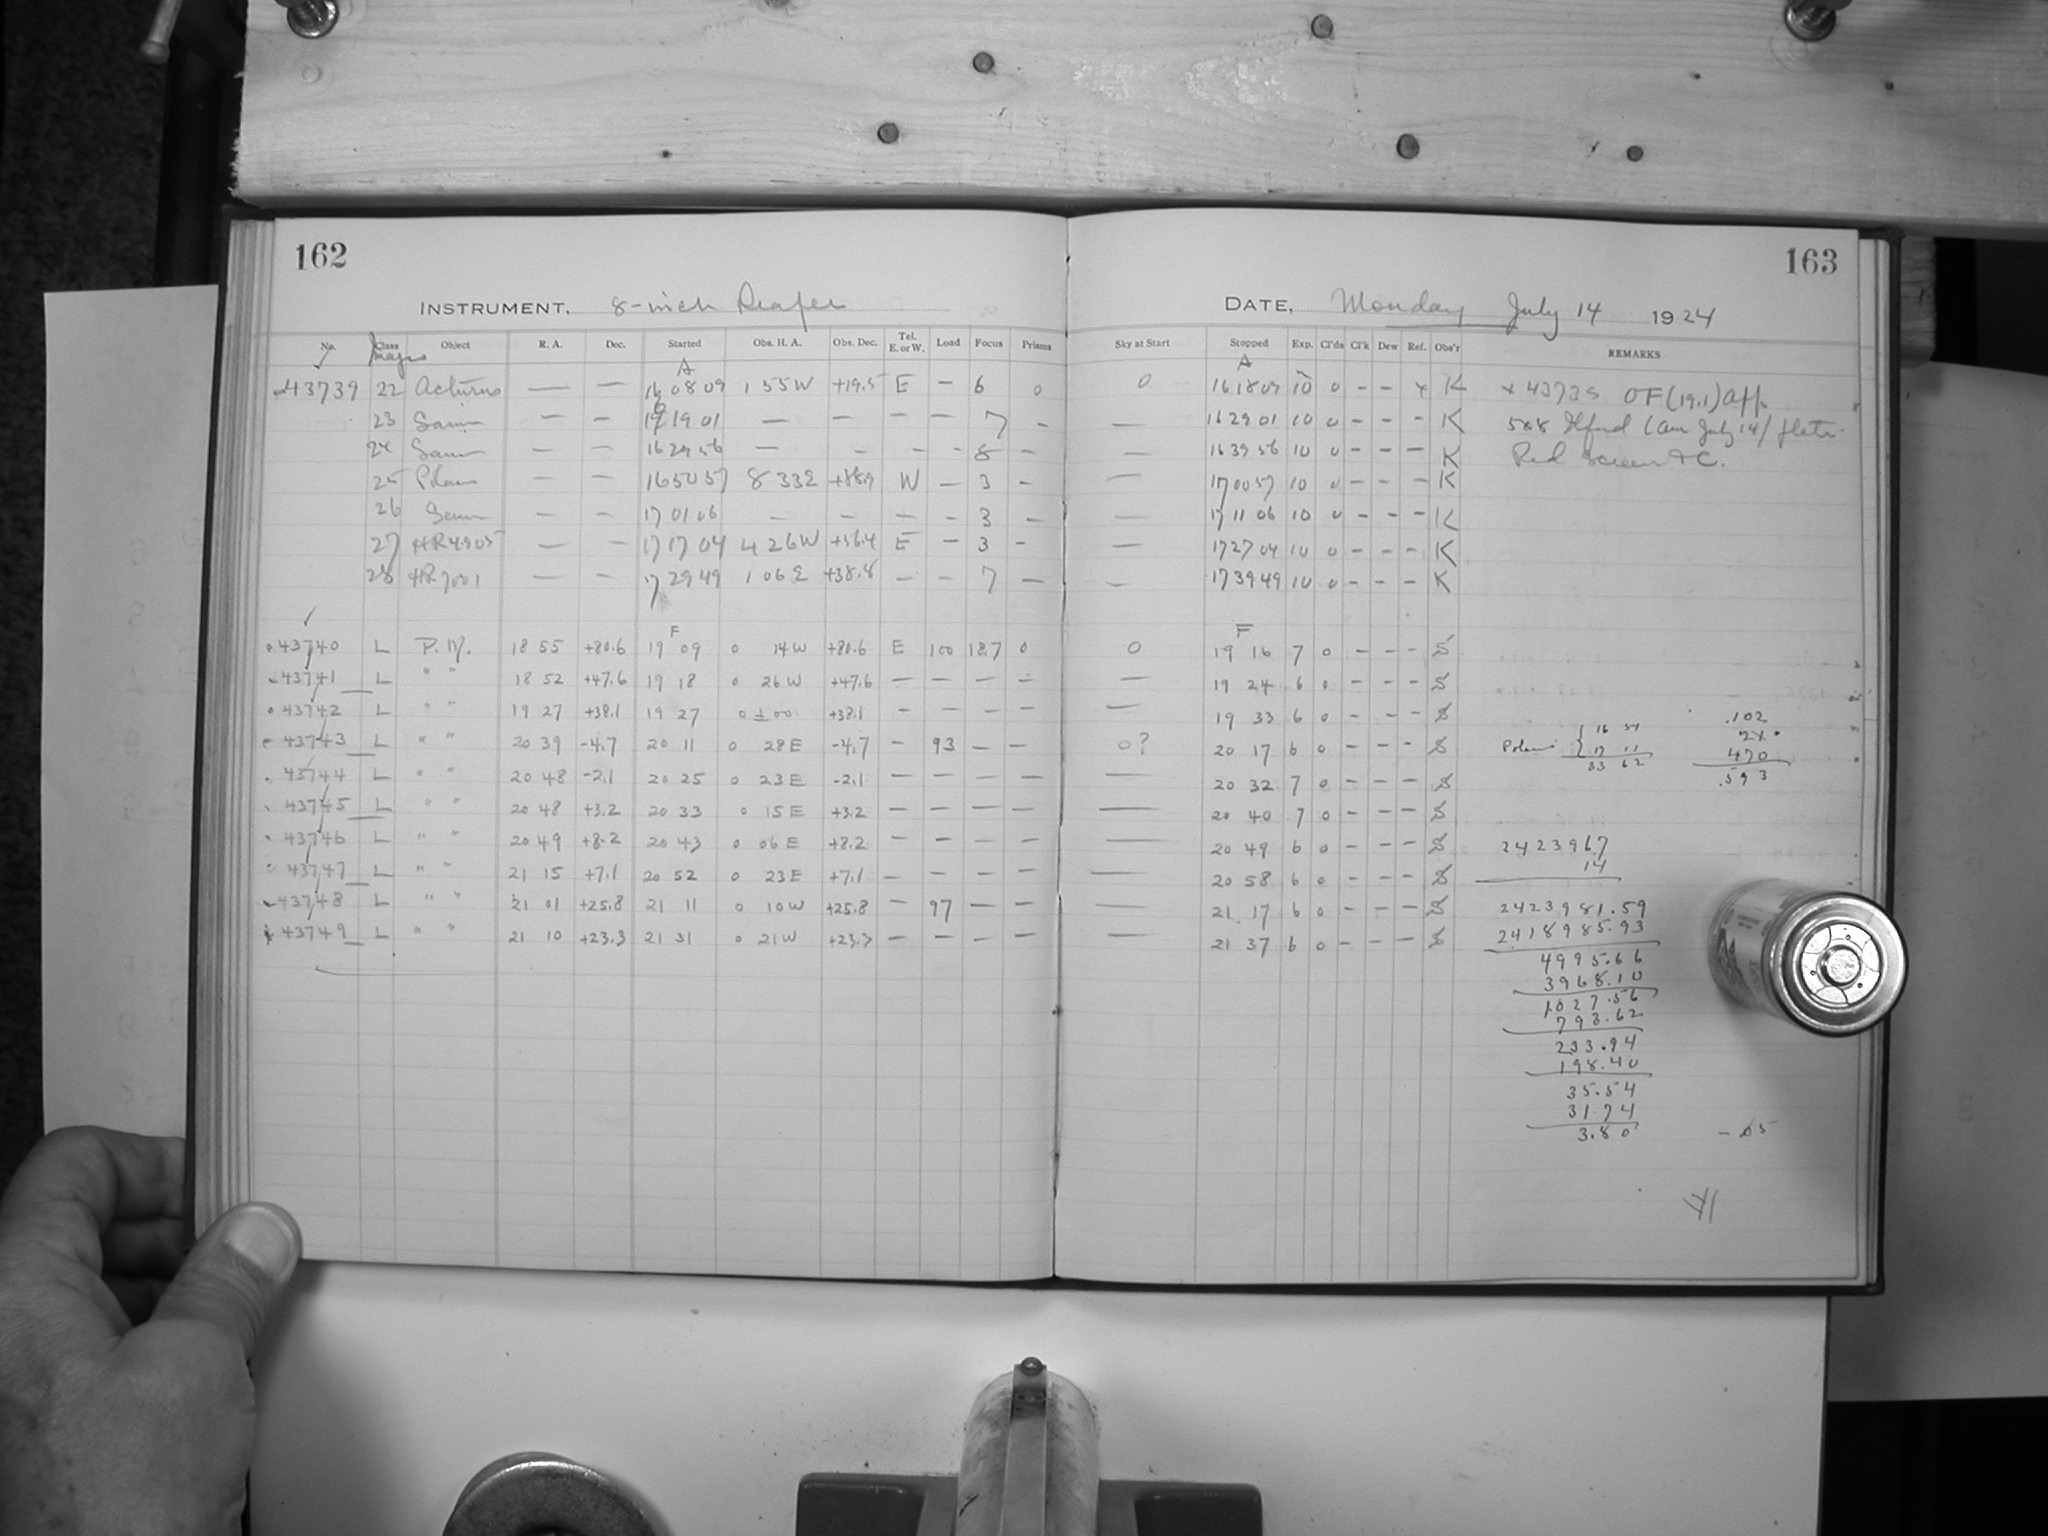 162
163
INSTRUMENT. 8-inch Draper
DATE, Monday July 14 1924
No. Class Object R. A. Dec. Started Obs. H. A. Obs. Dec. Tel. E. or W. Load Focus Prisms Sky at Start Stopped Exp. Cl'ds Cl'k Dew Ref. Obs'r REMARKS
A A
43739 22 Acturus — — 16 08 09 1 55 W +19.5 E — 6 0 0 16 18 09 10 0 - - x K x 43735 OF (19.1) Aff.
23 Same — — 19 01 — — — — 7 - — 16 29 01 10 0 - - - K 5x8 Ilford (am July 14) plate
24 Same — — 16 29 56 — - - - 8 - — 16 39 56 10 0 - - - K Red Screen + C.
25 Polaris — — 16 50 57 8 33 E +88.9 W — 3 - — 17 00 57 10 0 - - - K
26 Same — — 17 01 06 — — — — 3 — — 17 11 06 10 0 - - - K
27 HR4905 — — 17 17 04 4 26 W +56.4 E — 3 - — 17 27 04 10 0 - - - K
28 HR7001 — — 17 29 49 1 06 E +38.8 — — 7 — — 17 39 49 10 0 - - - K
F F
43740 L P. M. 18 55 +80.6 19 09 0 14 W +80.6 E 100 18.7 0 0 19 16 7 0 - - - S
43741 L " " 18 52 +47.6 19 18 0 26 W +47.6 — — — — — 19 24 6 0 - - - S
43742 L " " 19 27 +38.1 19 27 0 ±00 +38.1 - - - — — 19 33 6 0 - - - S
43743 L " " 20 39 -4.7 20 11 0 28 E -4.7 — 93 — — 0? 20 17 6 0 - - - S
43744 L " " 20 48 -2.1 20 25 0 23 E -2.1 — — — — — 20 32 7 0 - - - S
43745 L " " 20 48 +3.2 20 33 0 15 E +3.2 — — — — — 20 40 7 0 - - - S
43746 L " " 20 49 +8.2 20 43 0 06 E +8.2 — — — — — 20 49 6 0 - - - S
43747 L " " 21 15 +7.1 20 52 0 23 E +7.1 — — — — — 20 58 6 0 - - - S
43748 L " " 21 01 +25.8 21 11 0 10 W +25.8 — 97 — — — 21 17 6 0 - - - S
43749 L " " 21 10 +23.3 21 31 0 21 W +23.3 — — — — — 21 37 6 0 - - - S
Polaris
17 11
33 62
.102
470
.593
2423967
14
2423981.59
2418985.93
4995.66
3968.10
1027.56
793.62
233.94
198.40
35.54
31.74
3.80